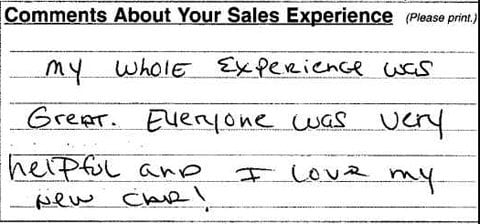 Comments About Your Sales Experience (Please print.)
My whole experience was
Great. Everyone was very
helpful and I love my
new car!